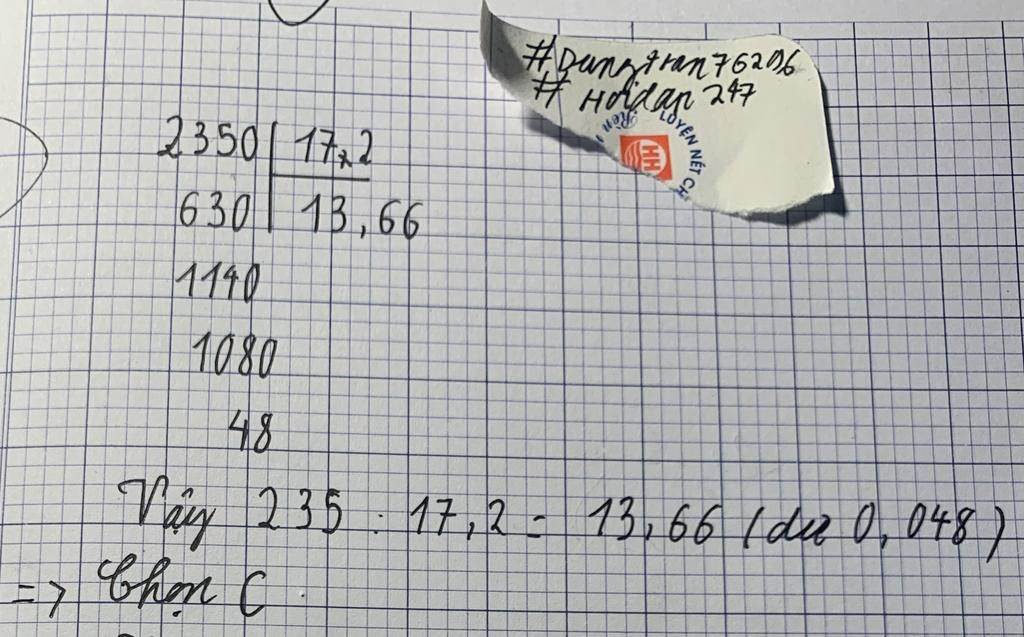 #Dungtran76296
# Hoidap247
LUYỆN NÉT CH
HH
2350 17,2
630 13,66
1140
1080
48
Vậy 235 : 17,2 = 13,66 (dư 0,048)
=> Chọn C